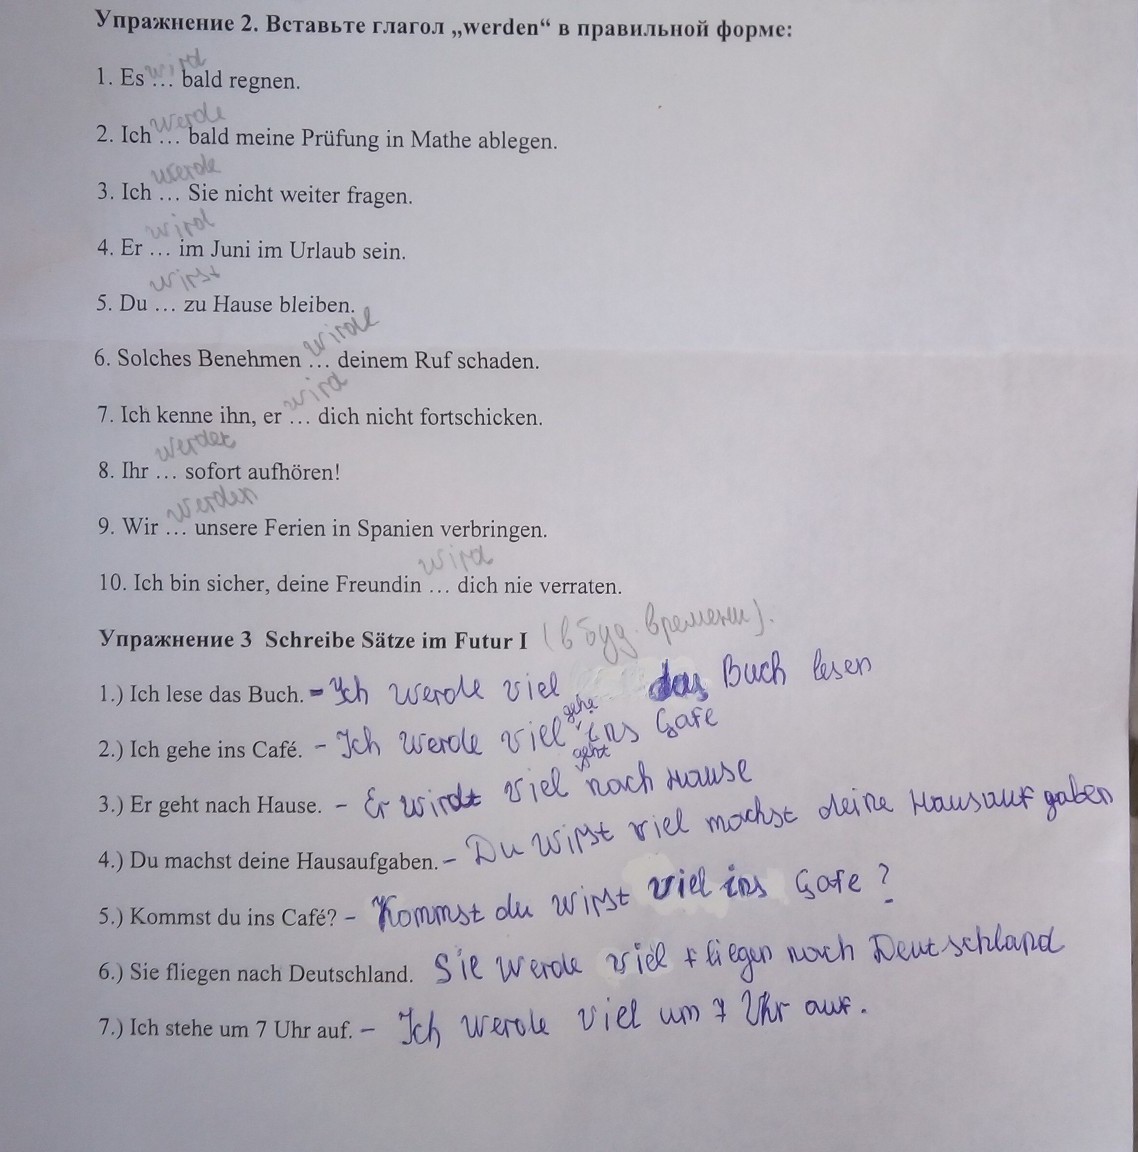 Упражнение 2. Вставьте глагол „werden“ в правильной форме:
wird
1. Es ... bald regnen.
werde
2. Ich ... bald meine Prüfung in Mathe ablegen.
werde
3. Ich ... Sie nicht weiter fragen.
wird
4. Er ... im Juni im Urlaub sein.
wirst
5. Du ... zu Hause bleiben.
wird
6. Solches Benehmen ... deinem Ruf schaden.
wird
7. Ich kenne ihn, er ... dich nicht fortschicken.
werdet
8. Ihr ... sofort aufhören!
werden
9. Wir ... unsere Ferien in Spanien verbringen.
wird
10. Ich bin sicher, deine Freundin ... dich nie verraten.
Упражнение 3 Schreibe Sätze im Futur I (в буд. времени).
1.) Ich lese das Buch. – Ich werde viel das Buch lesen
2.) Ich gehe ins Café. – Ich werde viel gehe ins Cafe
3.) Er geht nach Hause. – Er wird viel geht nach Hause
4.) Du machst deine Hausaufgaben. – Du wirst viel machst deine Hausaufgaben
5.) Kommst du ins Café? – Kommst du wirst viel ins Cafe?
6.) Sie fliegen nach Deutschland. Sie werde viel fliegen nach Deutschland
7.) Ich stehe um 7 Uhr auf. – Ich werde viel um 7 Uhr auf.